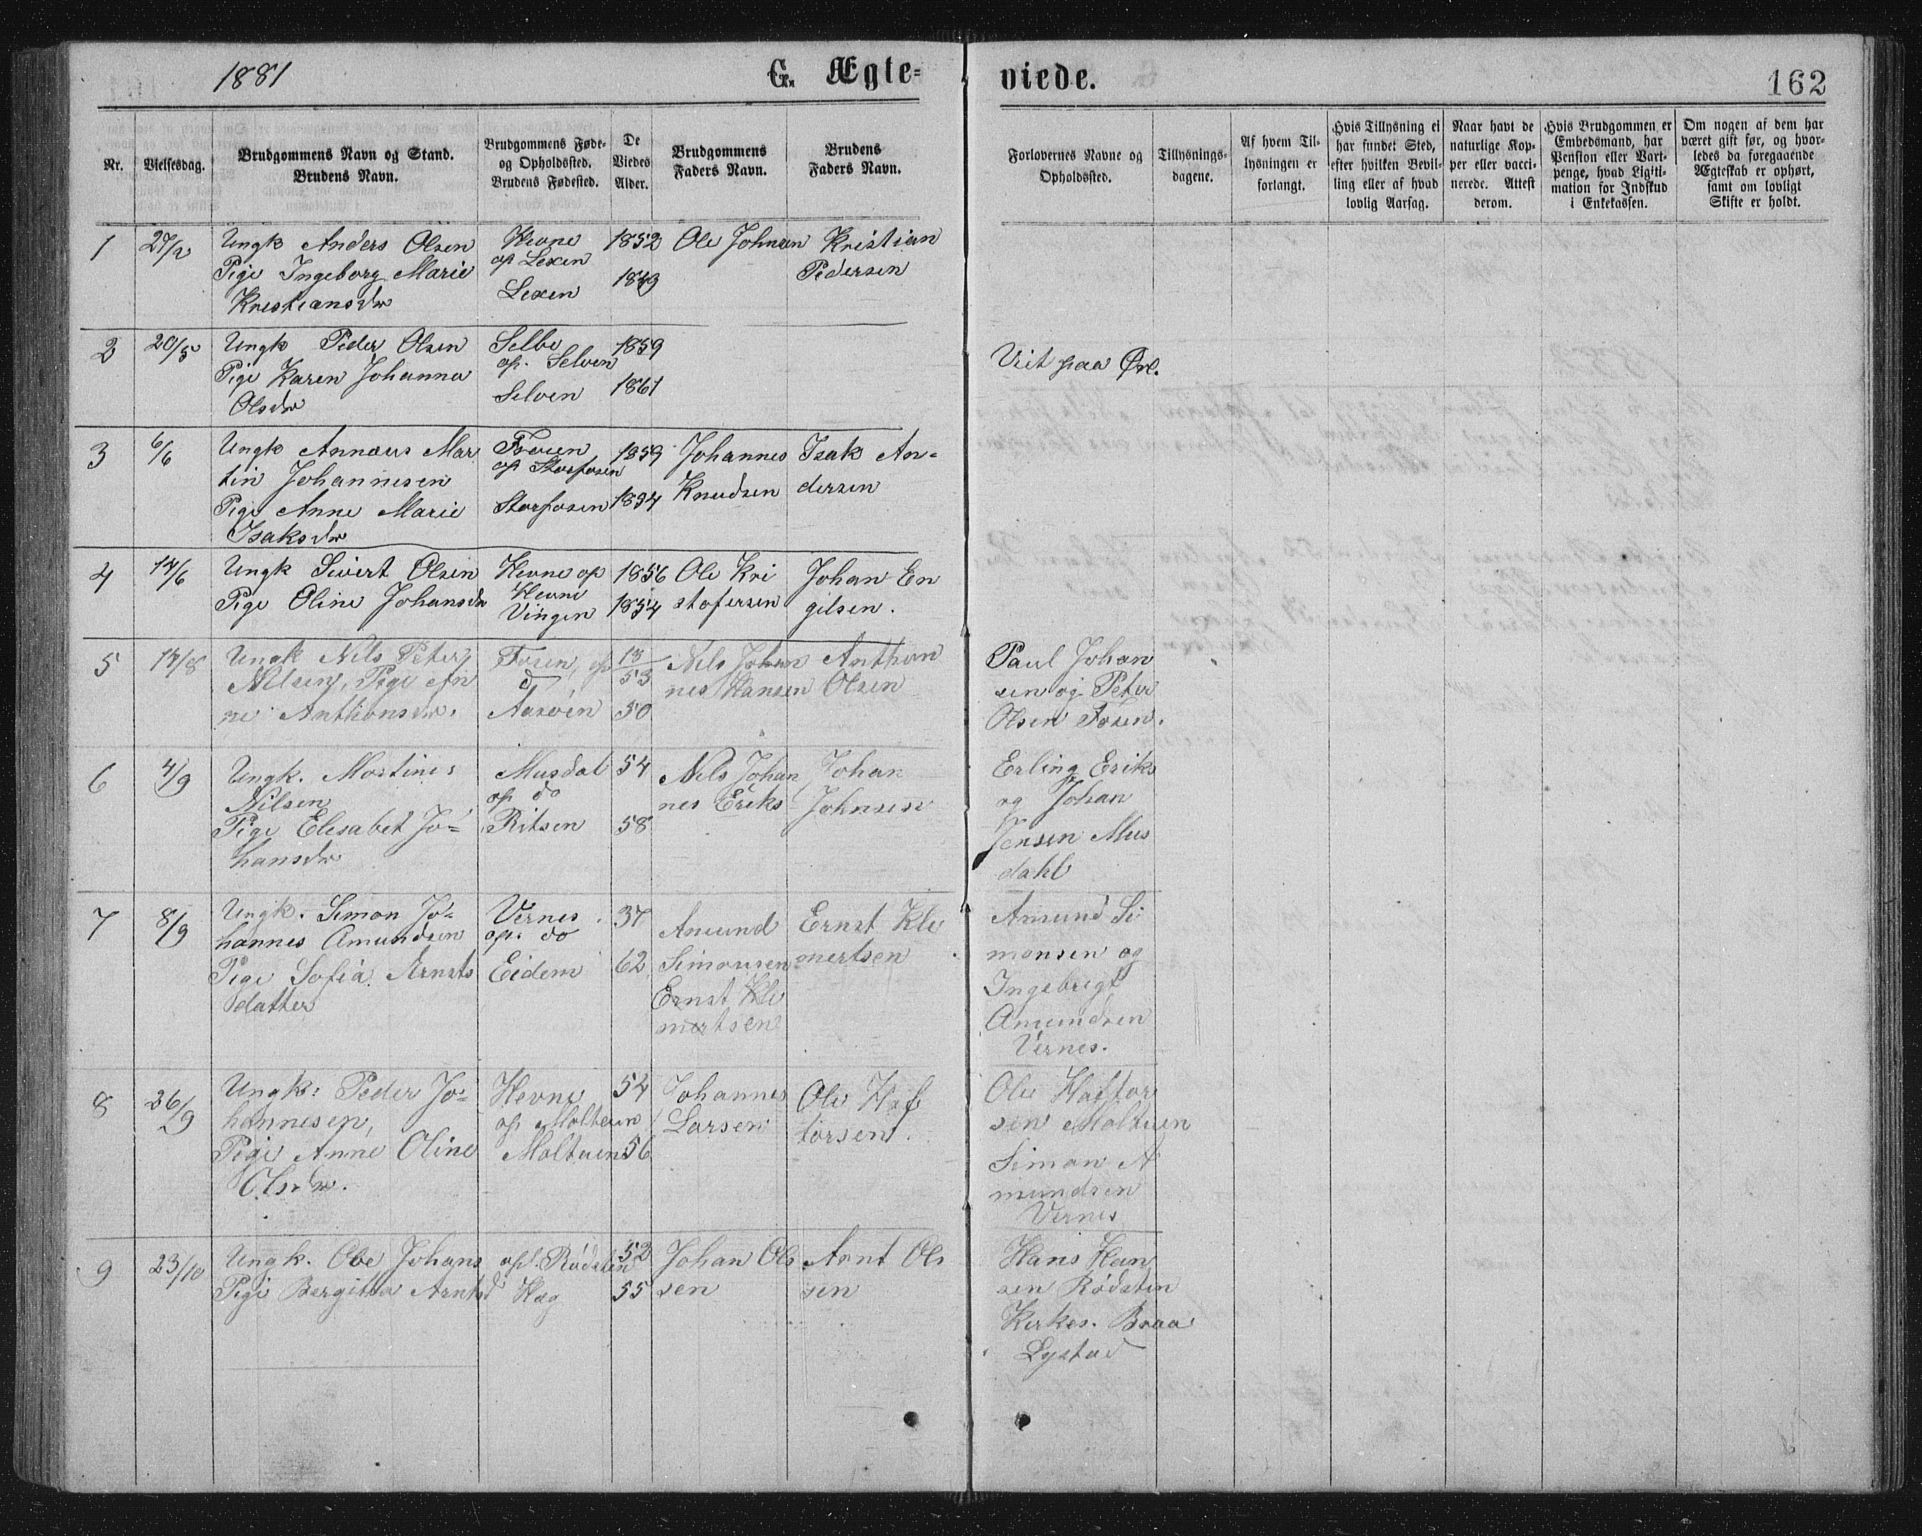 1881
G. Ægte-
viede.
162
Nr.
Vielsesdag.
Brudgommens Navn og Stand.
Brudens Navn.
Brudgommens Føde-
og Opholdssted.
Brudens Fødested.
De
Viedes
Alder.
Brudgommens
Faders Navn.
Brudens
Faders Navn.
Forlovernes Navne og
Opholdssted.
Tillysnings-
dagene.
Af hvem Til-
lysningen er
forlangt.
Hvis Tillysning ei
har fundet Sted,
efter hvilken Bevil-
ling eller af hvad
lovlig Aarsag.
Naar havt de
naturlige Kop-
per eller vacci-
nerede. Attest
derom.
Hvis Brudgommen er
Embedsmand, har
Pension eller Vart-
penge, hvad Ligiti-
mation for Indskud
i Enkekassen.
Om nogen af dem har
været gift før, og hvor-
ledes da foregaaende
Ægteskab er ophørt,
samt om lovligt
Skifte er holdt.
1
27/2
Ungk Anders Olsen
Pige Ingeborg Marie
Kristiansdr
Hevne
op Lexen
Lexen
1852
Ole Johnsen
Kristian
Pedersen
2
20/5
Ungk Peder Olsen
Pige Karen Johanna
Olsdr
Selbo
op. Selven
Selven
1859
1861
Viet paa Ørl.
3
6/6
Ungk Annæus Mar
tin Johannesen
Pige Anne Marie
Isaksdr
op Storfosen
Storfosen
1859
Johannes
Knudsen
Isak An-
dersen
4
14/6
Ungk Sivert Olsen
Pige Oline Johansdr
Hevne op
Hevne
Vingen
1856
1854
Ole Kri
stofersen
Johan En
gilsen.
5
14/8
Ungk Nils Peter
Nilsen, Pige An
ne Anthonsdr.
Fosen, op
d
Aasven
18
53
50
Nils Johan
nes Hansen
Anthon
Olsen
Paul Johan
sen og Peter
Olsen Fosen.
6
4/9
Ungk. Mortines
Nilsen
Pige Elesabet Jo-
hansdr
Musdal
op do
Ritsen
54
58
Nils Johan
nes Eriks
Johan
Johnsen
Erling Eriks
og Johan
Jensen Mus
dahl
7
8/9
Ungk. Simon Jo-
hannes Amundsen
Pige Sofia Arnsts
datter
Vernes
op. do
Eidem
37
62
Amund
Simonsen
Ernst Kle
mertsen
Ernst Kle
mertsen
Amund Si
monsen og
Ingebrigt
Amundsen
Vernes.
8
26/9
Ungk: Peder Jo-
hannesen,
Pige Anne Oline
Olsdr.
Hevne
op Moltuun
Moltuen
54
56
Johannes
Larsen
Ole Haf
torsen.
Ole Haftor
sen Moltuen
Simon A
mundsen
Vernes
9
23/10
Ungk. Ole Johans
Pige Bergitta Arntsd
op. Rödsten
Hag
52
55
Johan Ols
sen
Arnt Ols
sen
Hans Han
sen Rödsten
Kirkes. Braa
Lystad